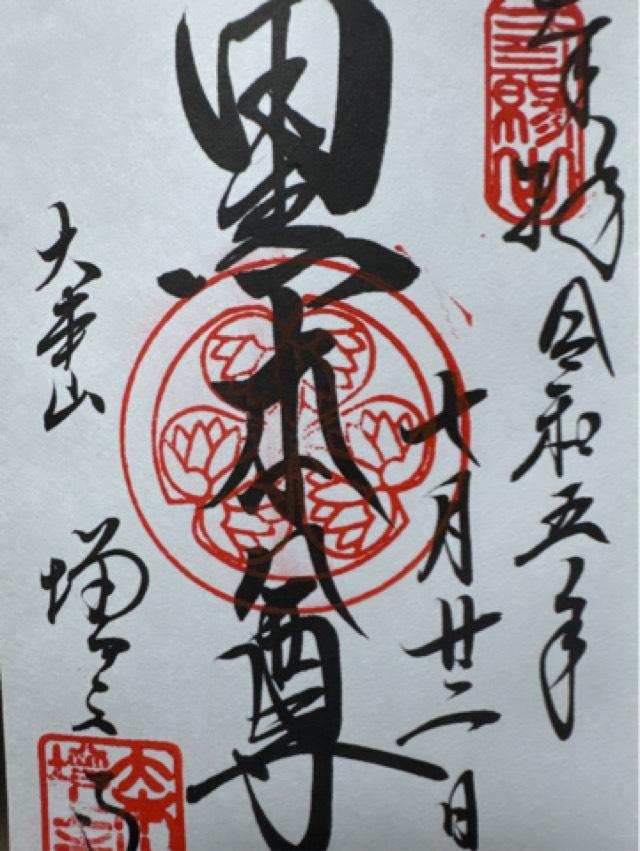 奉拝
令和五年
十月廿二日
黒本尊
大本山
増上寺
三縁山